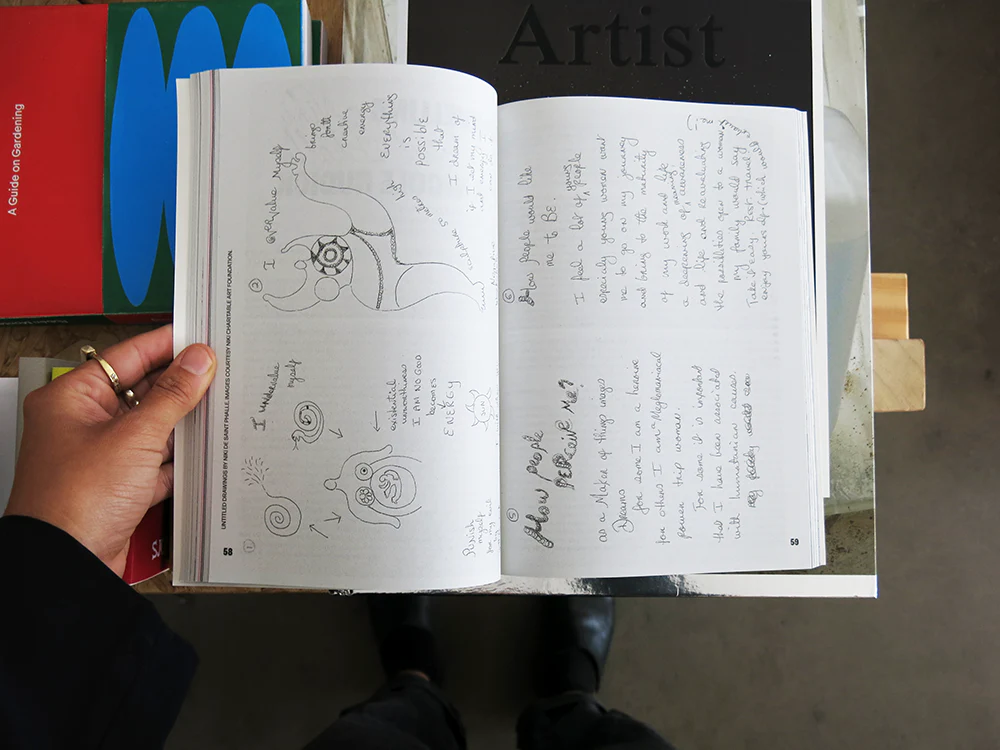 Artist
A Guide on Gardening
UNTITLED DRAWINGS BY NIKI DE SAINT PHALLE. IMAGES COURTESY NIKI CHARITABLE ART FOUNDATION.
58
1
I undervalue
Myself
existential
unworthiness
I AM NO GOOD
becomes
ENERGY
Punish
myself
2
I overvalue Myself
brings
forth
creative
energy
EVERYTHING
is
POSSIBLE
that
I dream of
if I set my mind
and energy
5
How People
PERCEIVE ME?
as a Maker of things images
Dreams
for some I am a heroine
for others I am a Meglomaniacal
power trip woman.
For some it is important
that I have been associated
with humanitarian causes.
6
How people would like
me to BE.
I feel a lot of young people
especially young women want
me to go on my journey
and bring to the maturity
of my word and life
a deepening of meaning awareness
and life and reevaluating
the possibilities open to a woman
my family would say
Take it easy. Rest. travel
enjoy yourself. (which would
59